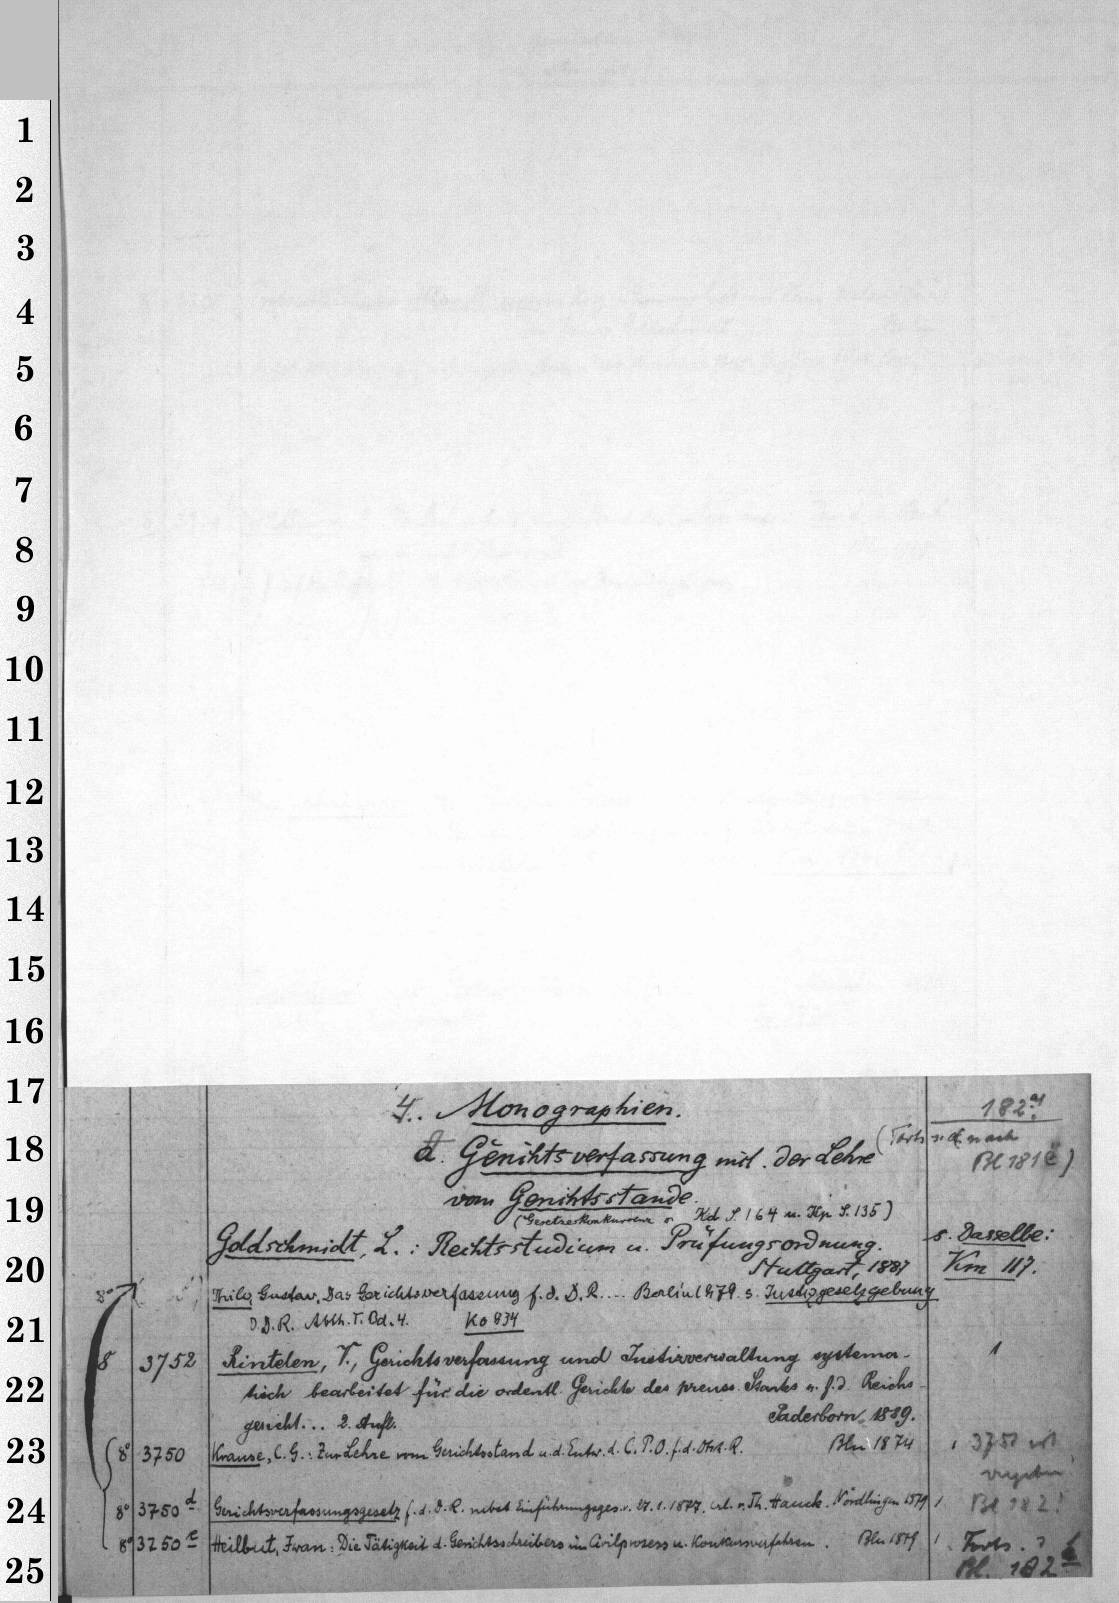 1
2
3
4
5
6
7
8
9
10
11
12
13
14
15
16
17
18
19
20
21
22
23
24
25
4. Monographien.
182a.
d. Gerichtsverfassung mit der Lehre
(Forts. nach
Bl 181e)
vom Gerichtsstande.
(Gesetzeskonkurrenz s. Kd S. 164 u. Kp S. 135)
Goldschmidt, L.: Rechtsstudium u. Prüfungsordnung.
s. Dasselbe:
Stuttgart, 1887
Km 117.
8° Thilo, Gustav, Das Gerichtsverfassung f. d. D. R.... Berlin 1879 s. Justizgesetzgebung
D. D. R. Abth. 1. Bd. 4. Ko 834
8 3752 Rintelen, V., Gerichtsverfassung und Justizverwaltung systema- 1
tisch bearbeitet für die ordentl. Gerichte des preuss. Staates u. f. d. Reichs-
gericht... 2. Aufl. Paderborn, 1889.
8° 3750 Krause, C. G.: Zur Lehre vom Gerichtsstand u. d. Entw. d. C. P. O. f. d. Dtsch. R. Bln 1874 1 3751 ist
vergeben
8° 3750 d Gerichtsverfassungsgesetz f. d. D. R. nebst Einführungsges. v. 27. 1. 1877. erl. v. Th. Hauck. Nördlingen 1879 1 Bl 182!
8° 3750 e Heilbut, Iwan: Die Tätigkeit d. Gerichtsschreibers im Civilprozess u. Konkursverfahren. Bln 1879 1 Forts. s.
Bl. 182 b